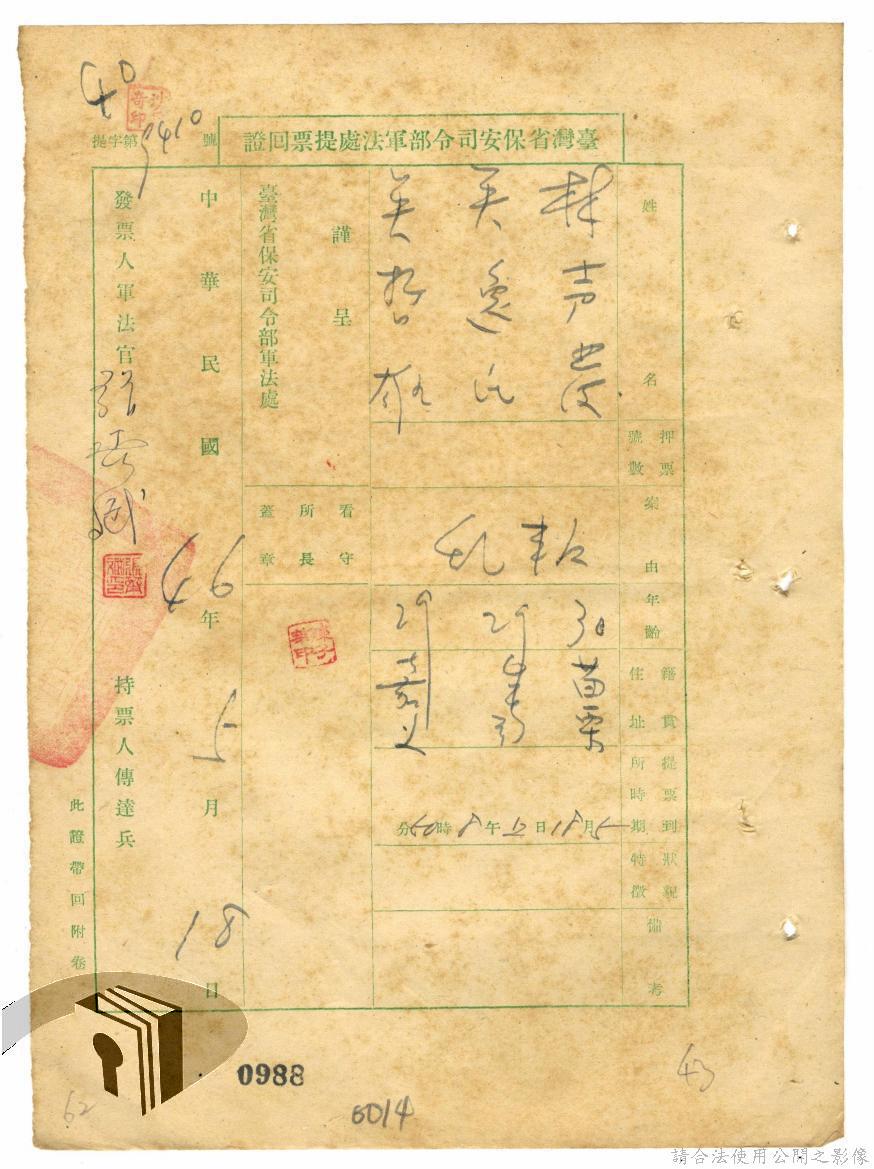 40
臺灣省保安司令部軍法處提票回證
提字第9410號
姓名
林声發
吳逸民
吳哲雄
押票號數
案由
叛亂
年齡
30
29
29
籍貫住址
苗栗
嘉义
提票到所時期
5月18日上午8時50分
狀貌特徵
備考
謹呈
臺灣省保安司令部軍法處
看守所長蓋章
中華民國46年5月18日
發票人軍法官
持票人傳達兵
此證帶回附卷
0988
6014
43
62
請合法使用公開之影像